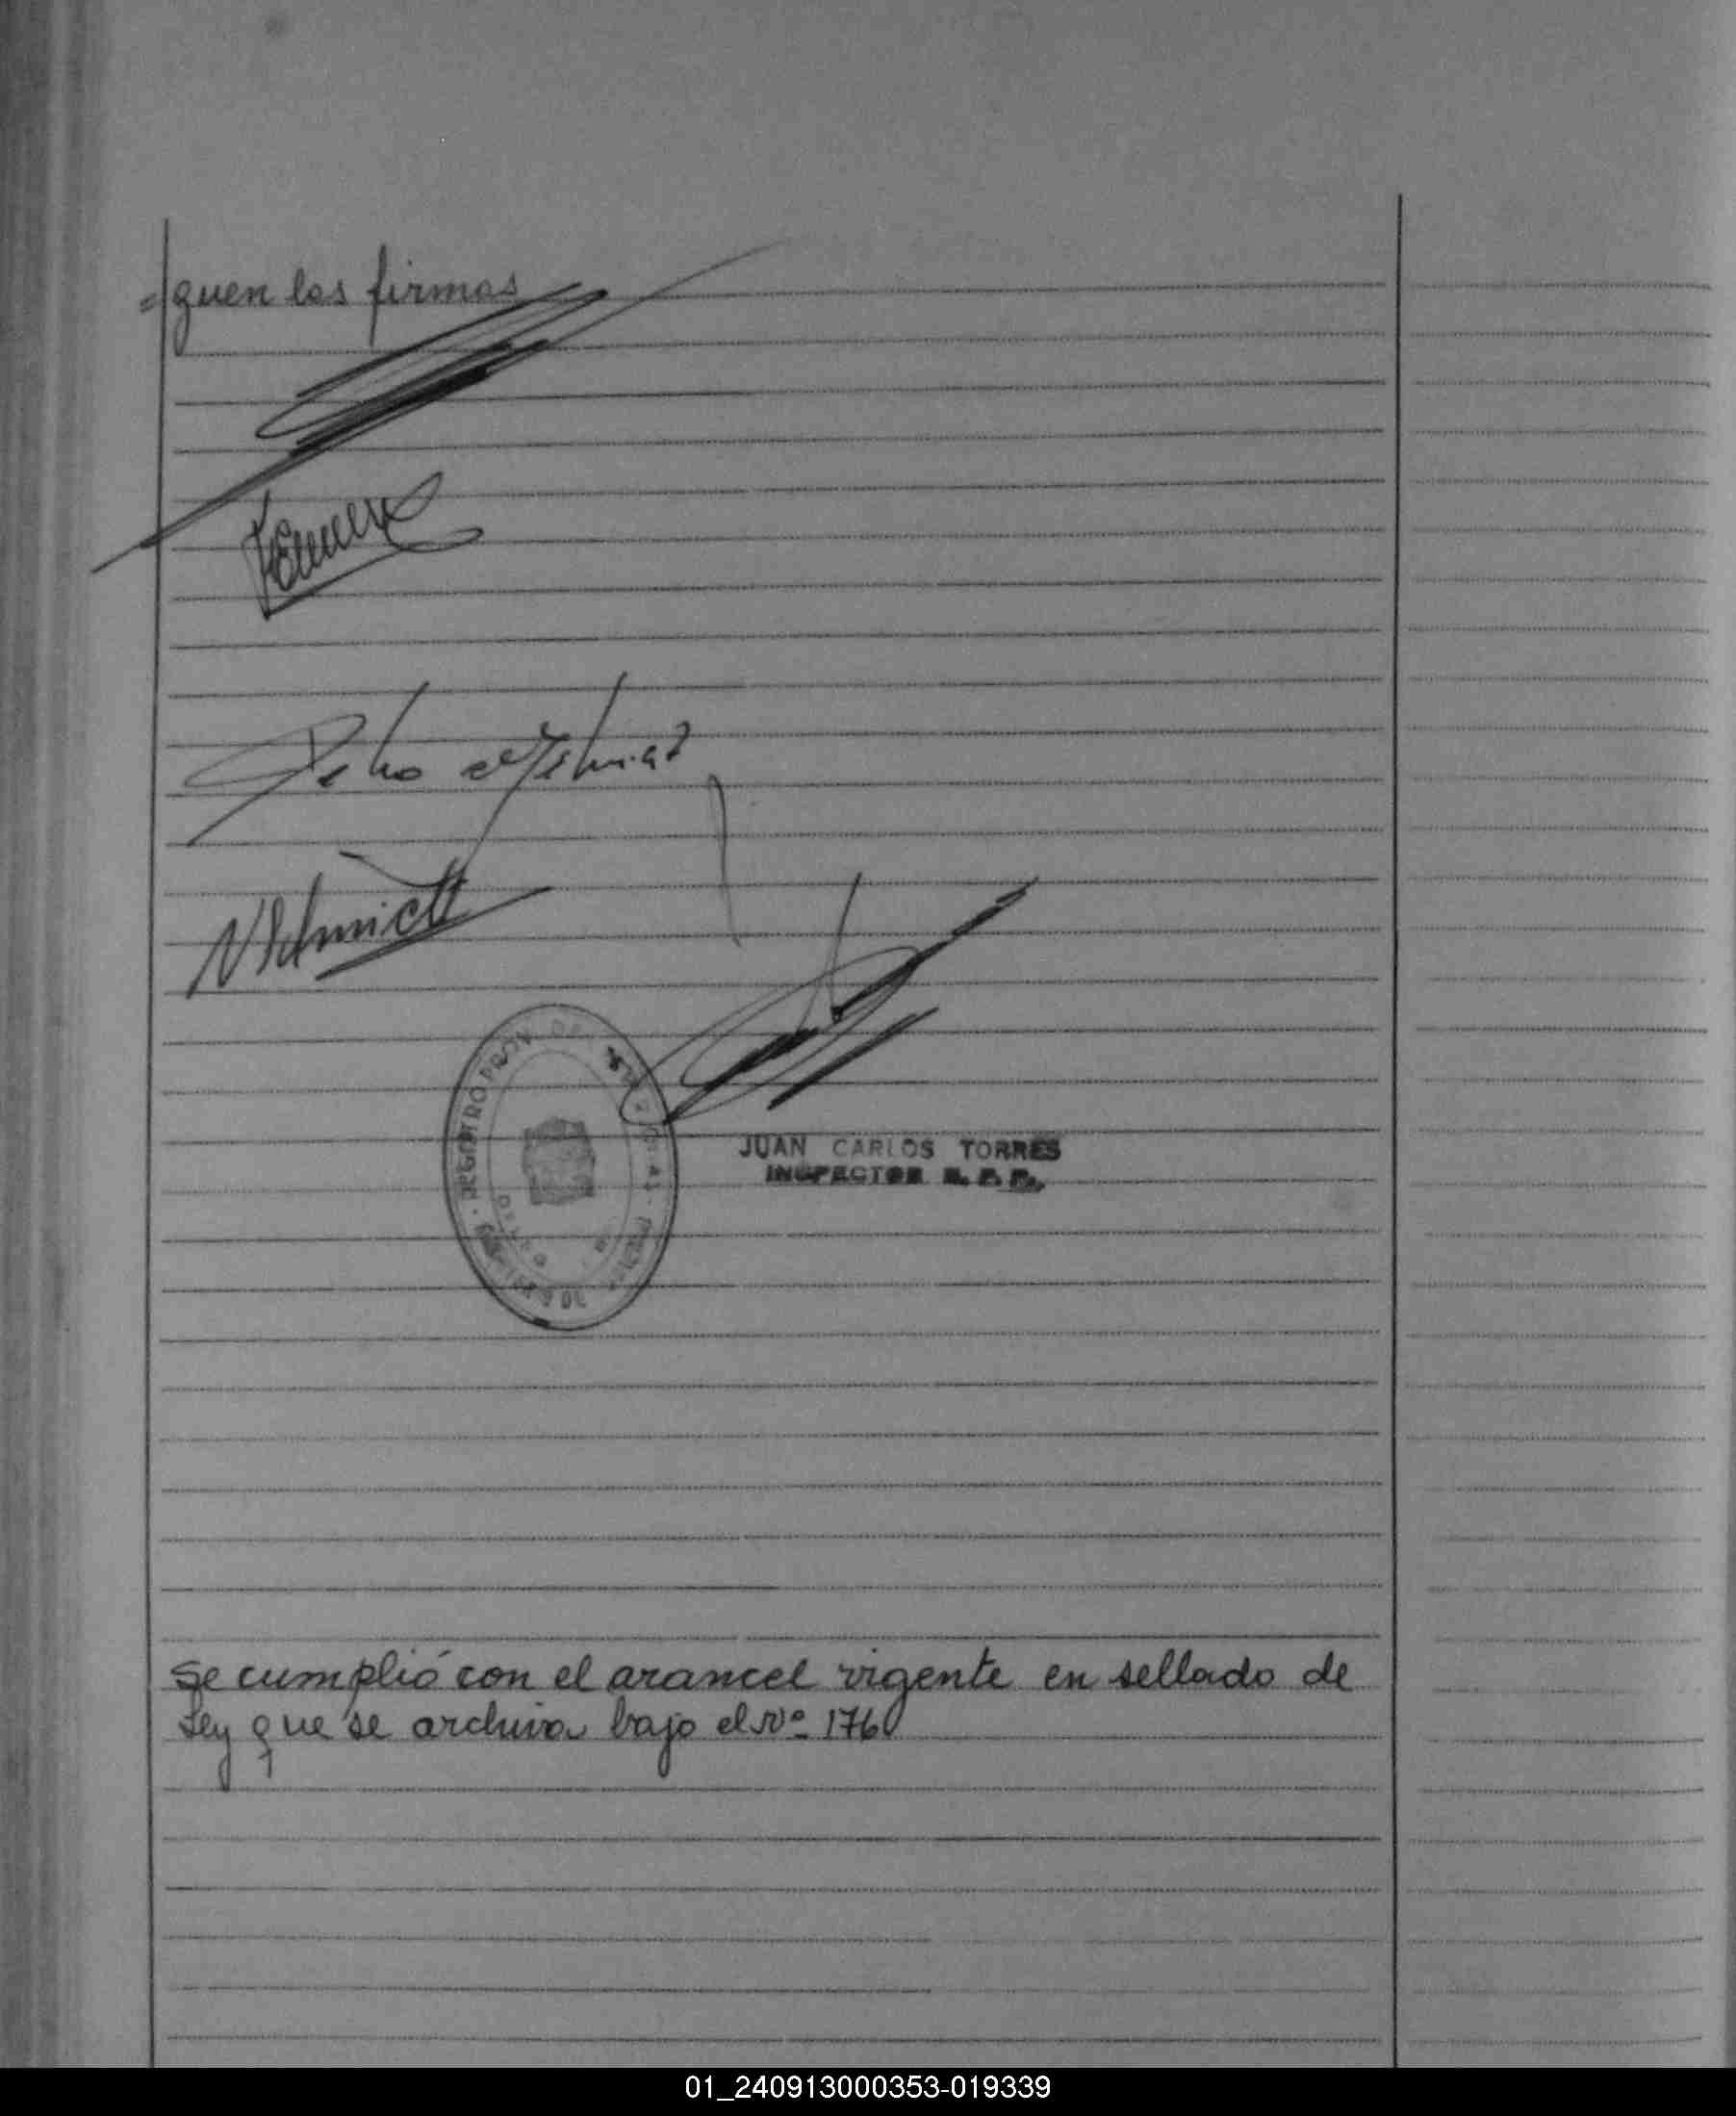 =guen las firmas
NSchmidt
REGISTRO PROV. DE
JUAN CARLOS TORRES
INSPECTOR R. P. P.
Se cumplió con el arancel vigente en sellado de
Ley que se archiva bajo el Nº 1760
01_240913000353-019339